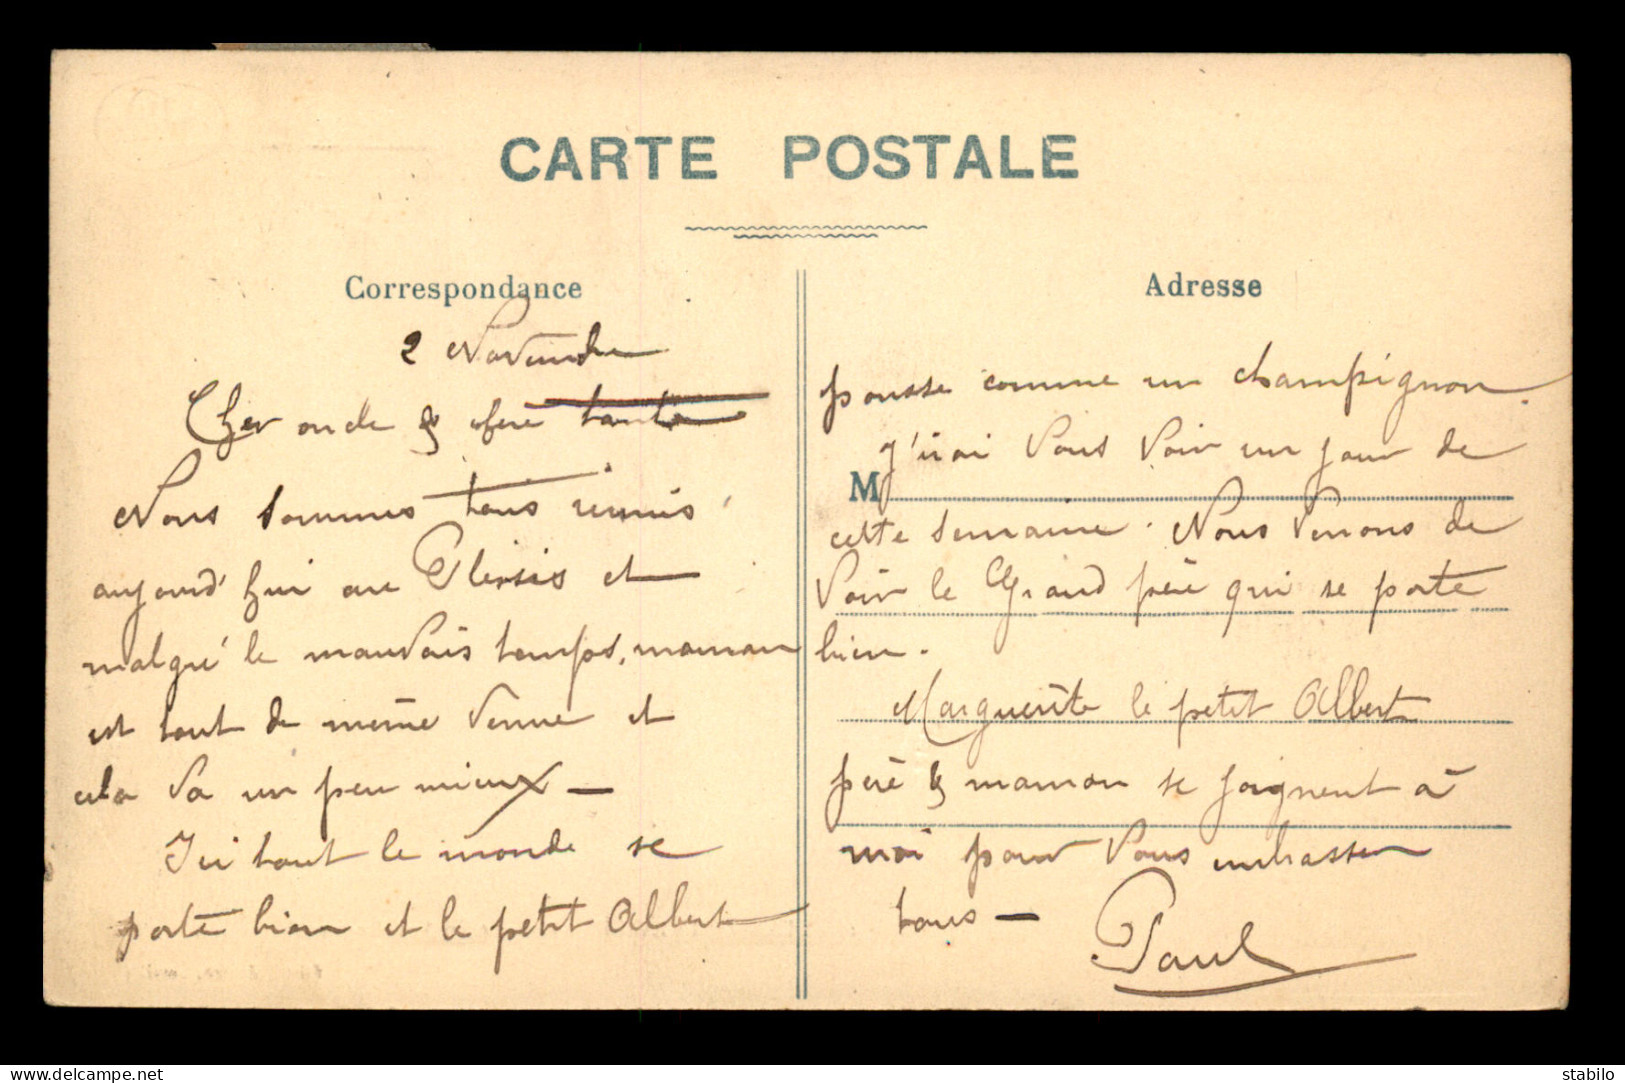 CARTE POSTALE
Correspondance
2 Novembre
Cher oncle & chère tante
Nous sommes tous réunis
aujourd'hui au Plessis et
malgré le mauvais temps, maman
est tout de même venue et
cela va un peu mieux —
Ici tout le monde se
porte bien et le petit Albert
Adresse
pousse comme un champignon.
J'irai vous voir un jour de
M
cette semaine. Nous venons de
voir le Grand père qui se porte
bien.
Marguerite le petit Albert
père & maman se joignent à
moi pour vous embrasser
tous —
Paul
www.delcampe.net
stabilo